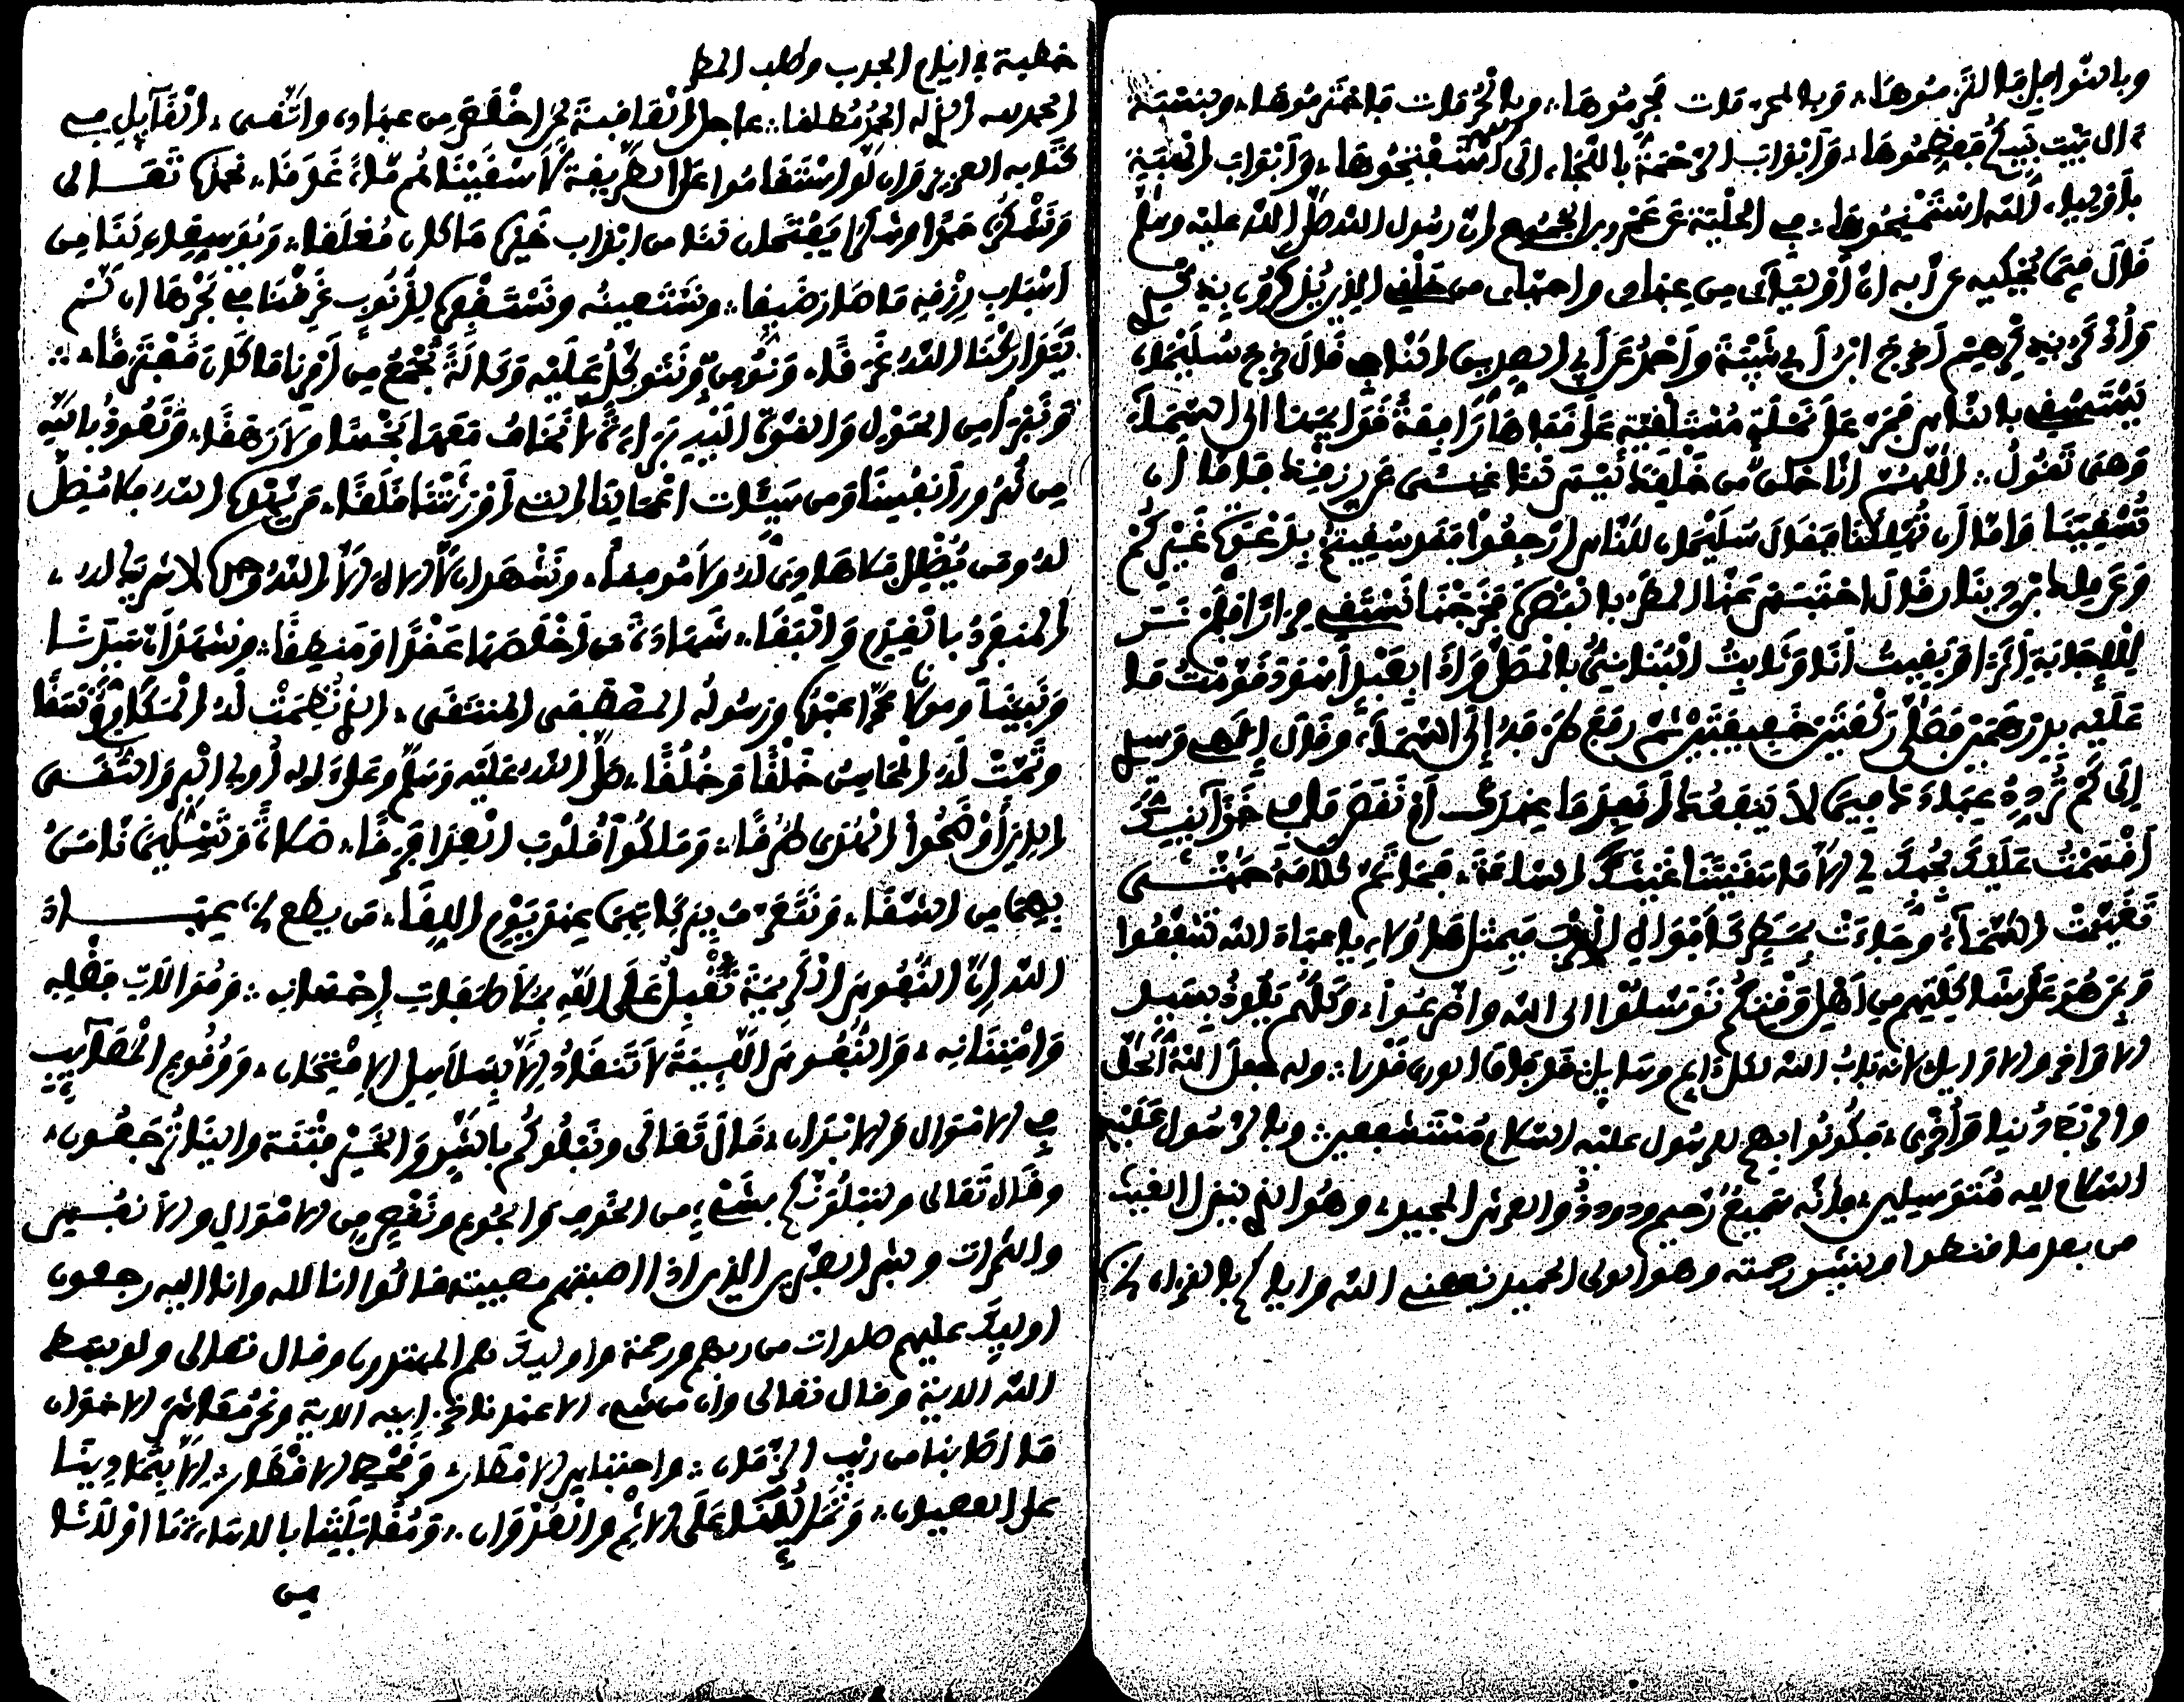 وبالنوافل فالتزموها، وبالمحرمات فجرموها، وبالحرمات فاحترموها، وبنسبة
ءال بيت نبيكم فعظموها، وأبواب الرحمة بالالتجاء إلى الله استفتحوها، وأبواب
بأولياء الله استمنحوها، في الحلية عن عمرو بن الجموح ان رسول الله صلى الله عليه وسلم
قال فيما يحكيه عن ربه ان أوليائي من عبادي واحبائي من خلقي الذين يذكرون بذكري
وأذكر بذكرهم أخرج ابن أبي شيبة وأحمد عن أبي الصديق الناجي قال خرج سليمان
يستسقي بالناس فمر على نملة مستلقية على قفاها رافعة قوايمها الى السماء
وهي تقول اللهم انا خلق من خلقك ليس لنا غنى عن رزقك فاما أن
تسقينا واما أن تهلكنا فقال سليمان للناس ارجعوا فقد سقيتم بدعوة غيركم
وعن مالك بن دينار قال احتبس عنا المطر بالبصرة فخرجنا نستسقي مرارا فلم نر
للإجابة أثرا فبقيت أنا وثابت البناني بالمصلى وإذا بعبد أسود قومت ما
عليه بدرهمين فصلى ركعتين خفيفتين ثم رفع طرفه إلى السماء، وقال إلهي وسيدي
إلى كم تردد عبادك فيما لا ينفعك أنفد ما عندك أم نقص ما في خزائنك
أقسمت عليك بحبك لي إلا ما سقيتنا غيثك الساعة، فما تم كلامه حتى
تغيمت السماء، وجاءت بمطر كأفواه القرب فبمثل هؤلاء يا عباد الله تشفعوا
وبمن هو على شاكلتهم من أهل وقتكم توسلوا الى الله واضرعوا، وكلهم يلوذ بسيد
الاواخر والاوايل لانه باب الله
والرتبة دنيا وأخرى، فكونوا بهم للرسول عليه السلام مستشفعين، وبالرسول عليه
السلام لله متوسلين، فإنه سميع رحيم ودود ذو العرش المجيد، وهو الذي ينزل الغيث
من بعد ما قنطوا وينشر رحمته وهو الولي الحميد نفعني الله واياكم بالقرءان
خطبة في ايام الجدب وطلب المطر
الحمد لله الذي له الحمد مطلقا، جاعل العاقبة لمن اخلص من عباده واتقى، القائل في
كتابه العزيز وان لو استقاموا على الطريقة لأسقيناهم ماء غدقا، نحمده تعالى
ونشكره حمدا وشكرا يفتحان لنا من ابواب خيره ما كان مغلقا، ويوسعان لنا من
أسباب رزقه ما صار ضيقا، ونستعينه ونستغفره لذنوب غرضنا في بحرها ان لم
يتداركنا الله غرقا، ونؤمن به ونتوكل عليه وحاله تجمع من أمرنا ما كان مفترقا،
ونبرأ من الحول والقوة إليه براءة لا نخاف معها بخسا ولا رهقا، ونعوذ بالله
من شرور أنفسنا ومن سيئات اعمالنا التي أورثتنا قلقا، من يهده الله فلا مضل
له ومن يضلل فلا هادي له ولا موفقا، ونشهد ان لا إله إلا الله وحده لا شريك له،
المنفرد بالقيام والبقا، شهادة من أخلصها عقدا ومنطقا، ونشهد ان سيدنا
ونبينا ومولانا محمدا عبده ورسوله المصطفى المنتقى، الذي نظمت له المكارم نسقا
وتمت له المحاسن خلقا وخلقا، صلى الله عليه وسلم وعلى ءاله أولي البر والتقى
الذين أوضحوا الهدى طرقا، وملكوا قلوب العدا فرقا، صلاة وتسليما نامن
بهما من الشقا، ونتعرف بركاتهما عند يوم اللقا، من يطع الخ عباد
الله إن النفوس الكريمة تقبل على الله بملاطفات إحسانه، ومواللات فضله
وامتنانه، والنفوس اللئيمة لا تنقاد إلا بسلاسل الامتحان، ووقوع المصائب
في الاموال والابدان، قال تعالى ونبلوكم بالشر والخير فتنة والينا ترجعون،
وقال تعالى ولنبلونكم بشيء من الخوف والجوع ونقص من الاموال والانفس
والثمرات وبشر الصابرين الذين اذا اصبتهم مصيبة قالوا انا لله وانا اليه رجعون
اوليك عليهم صلوات من ربهم ورحمة واوليك هم المهتدون وقال تعالى ولو بسط
الله الاية وقال تعالى وان من شيء الا عندنا خزاينه الاية ونحن معاشر الاخوان
ما اصابنا من ريب الزمان، واحتباس الامطار وقحط الاقطار، إلا بتمادينا
على العصيان، وتمالئنا على الاثم والعدوان، ومقابلتنا بالاساءة ما اولانا
من